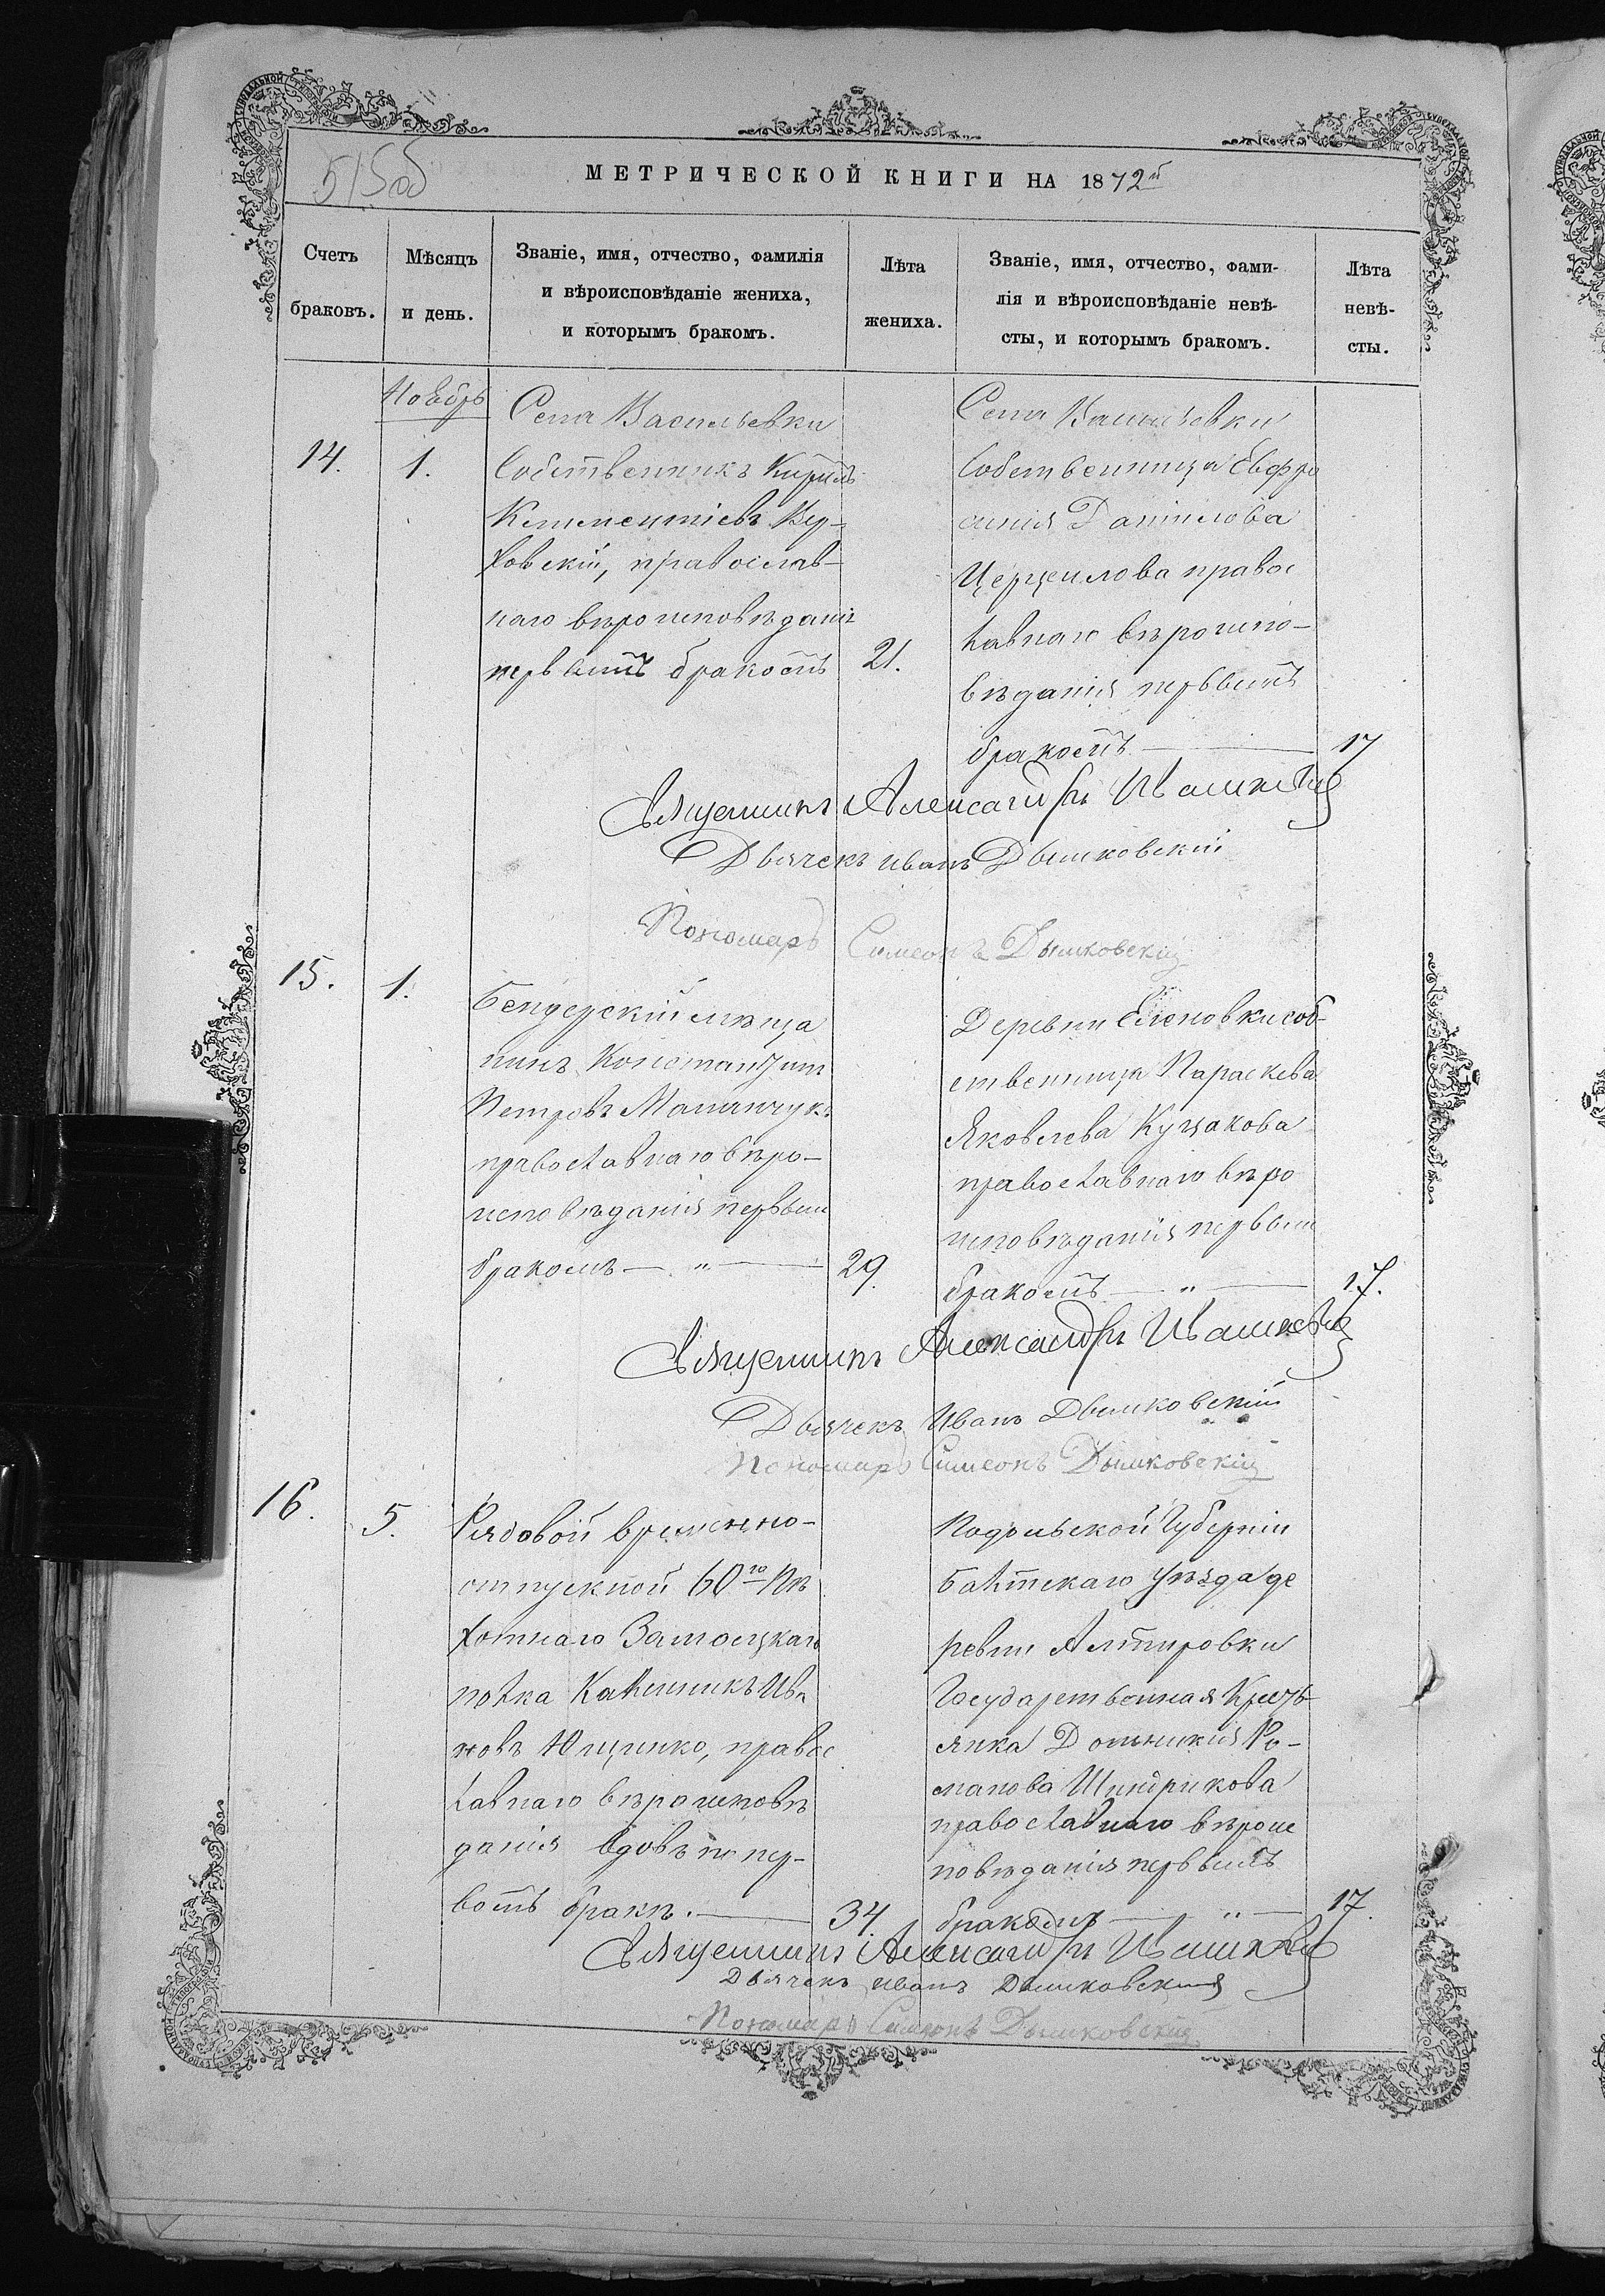 515об
МЕТРИЧЕСКОЙ КНИГИ НА 1872й
Счетъ браковъ.
Мѣсяцъ и день.
Званіе, имя, отчество, фамилія
и вѣроисповѣданіе жениха,
и которымъ бракомъ.
Лѣта жениха.
Званіе, имя, отчество, фами-
лія и вѣроисповѣданіе невѣ-
сты, и которымъ бракомъ.
Лѣта невѣ-
сты.
Ноябрь
14.
1.
Села Васильевки
Собственникъ Кирилъ
Климентіевъ Вер-
ховскій, православ-
наго вѣроисповѣданія
первымъ бракомъ
21.
Села Васильевки
Собственница Евфро
синія Даніилова
православнаго вѣроиспо-
вѣданія первымъ
бракомъ
17
Священникъ Александръ Ивашкевич
Дьячекъ Иванъ Дымковскій
Пономарь Симеонъ Дымковскій
15.
1.
Бендерскій мѣща
нинъ Константинъ
Петровъ Маланчукъ
православнаго вѣро-
исповѣданія первым
бракомъ — „ —
29.
Деревни Еленовки соб-
ственница Параскева
Яковлева Кушакова
православнаго вѣро
исповѣданія первым
бракомъ — „ —
17.
Священникъ Александръ Ивашкевич
Дьячекъ Иванъ Дымковскій
Пономарь Симеонъ Дымковскій
16.
5.
Рядовой временно-
отпускной 60го Пѣ
хотнаго Замосцкаго
полка Каленикъ Ива
новъ Ющинко, правос
лавнаго вѣроисповѣ
данія вдовъ по пер-
вомъ бракѣ.
34.
Подольской Губерніи
Балтскаго уѣзда де
ревни
Государственная Кресть-
янка Домникія Ро-
манова Шиндрикова
православнаго вѣроис
повѣданія первымъ
бракомъ — „ —
17.
Священникъ Александръ Ивашкевич
Дьячекъ Иванъ Дымковскій
Пономарь Симеонъ Дымковскій